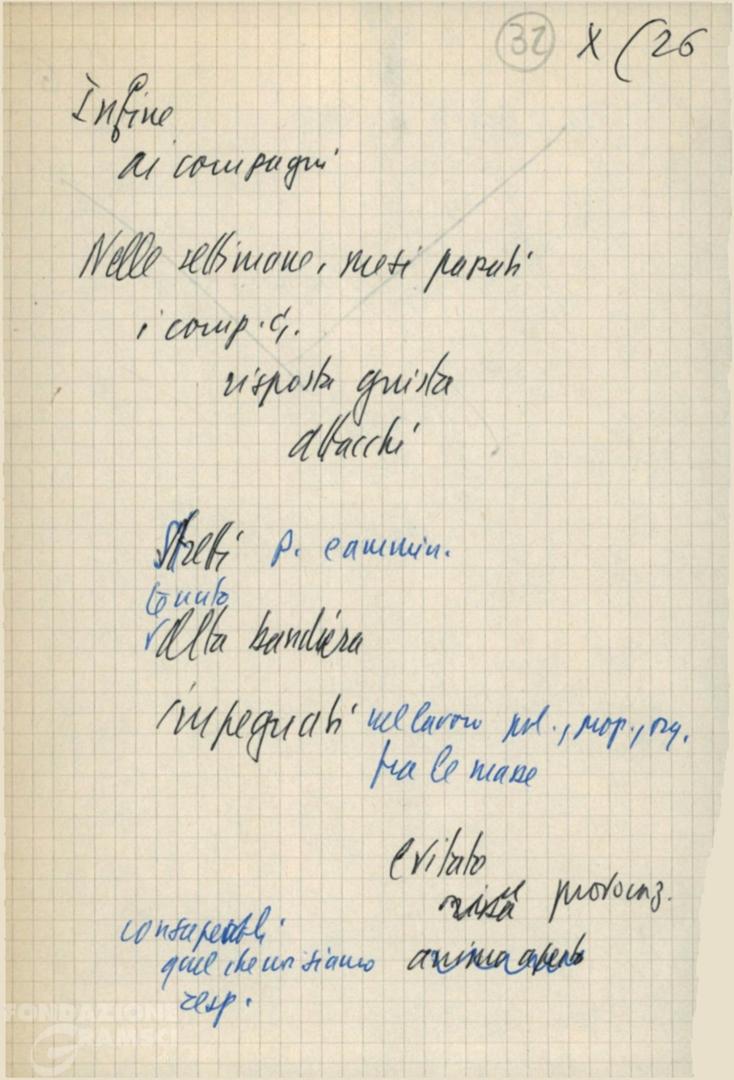 32 X (26
Infine
ai compagni
Nelle settimane, mesi passati
i comp.
risposta giusta
attacchi
Stretti p. cammin.
tenuto
alta bandiera
impegnati nel lavoro pol., prop., org.
fra le masse
evitato
risse provocaz.
consapevoli
quel che noi siamo
resp.
FONDAZIONE
GRAMSCI